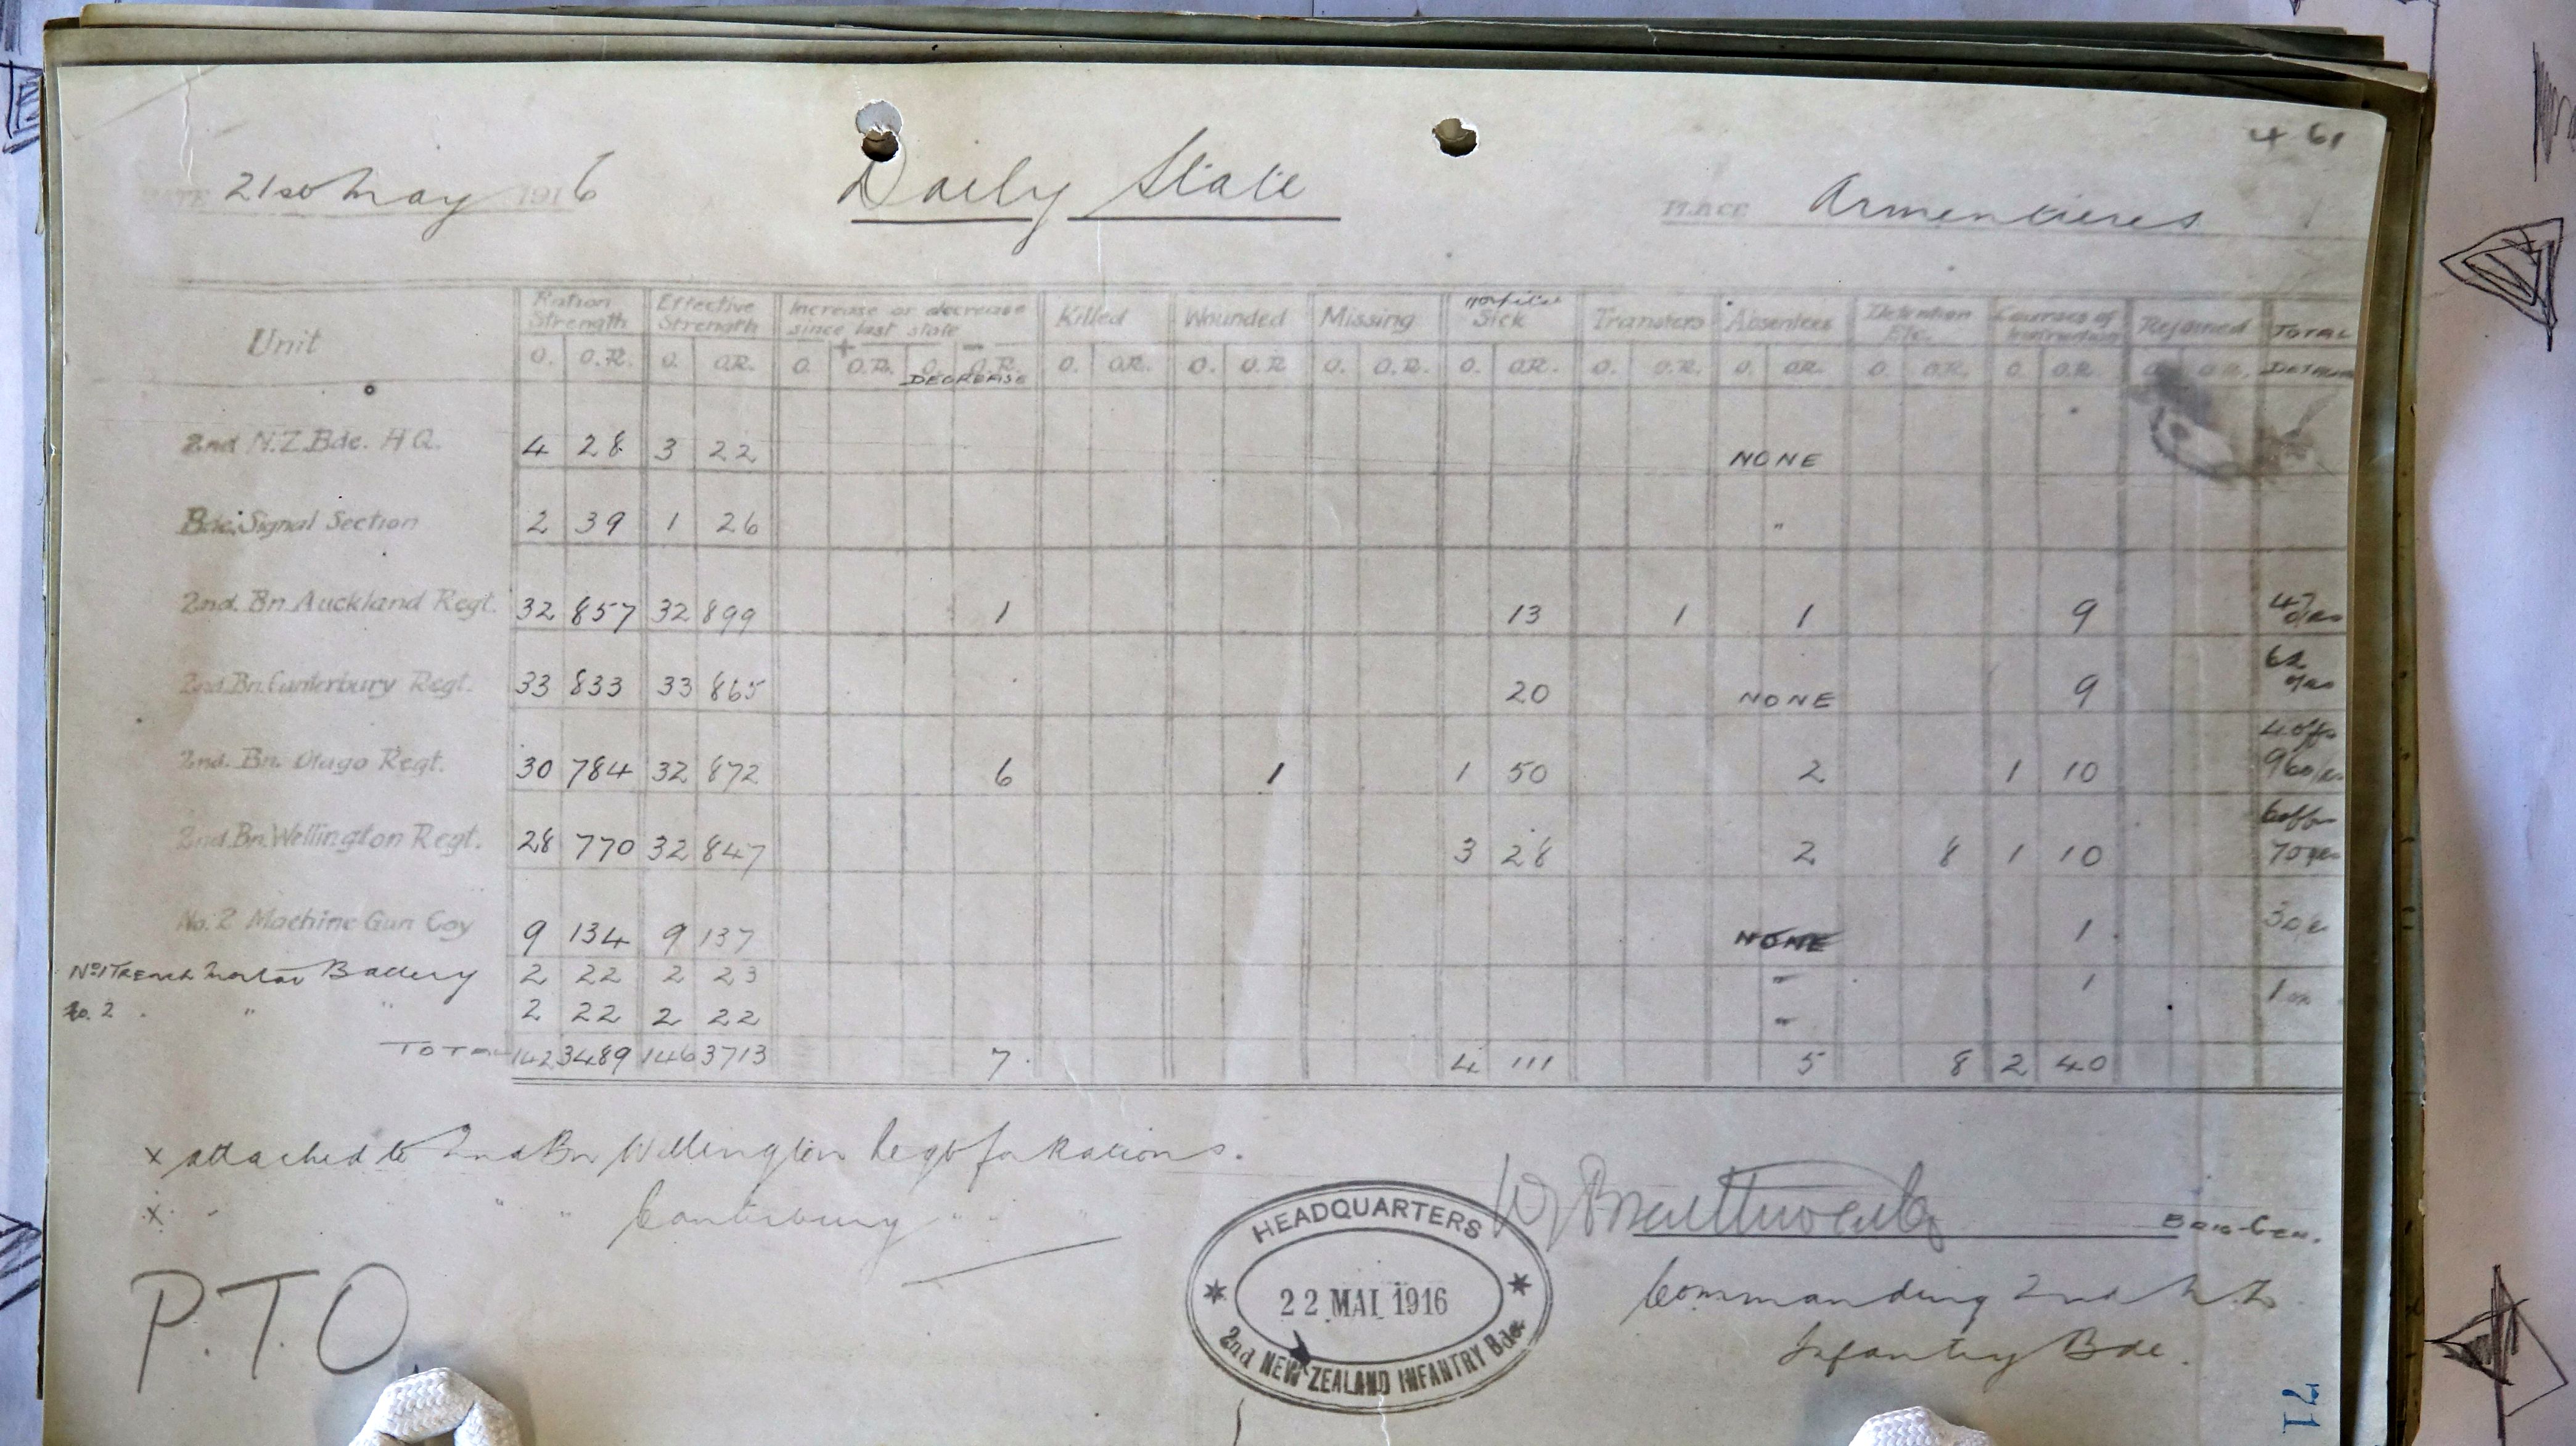 4 61
DATE 21st May 1916 Daily State PLACE Armentieres
Unit Ration Strength Effective Strength Increase or decrease since last state Killed Wounded Missing Hospital Sick Transfers Absentees Detention Etc. Courses of Instruction Rejoined TOTAL
+ -
O. O.R. O. O.R. O. O.R. O. O.R. O. O.R. O. O.R. O. O.R. O. O.R. O. O.R. O. O.R. O. O.R. O. O.R. O. O.R.
DECREASE
2nd N.Z. Bde. H.Q. 4 28 3 22 NONE
Bde. Signal Section 2 39 1 26 "
2nd. Bn. Auckland Regt. 32 857 32 899 1 13 1 1 9 47
2nd. Bn. Canterbury Regt. 33 833 33 865 20 NONE 9 62
2nd. Bn. Otago Regt. 30 784 32 872 6 1 1 50 2 1 10 4 offs 96
2nd. Bn. Wellington Regt. 28 770 32 847 3 28 2 8 1 10 6 offs 70
No. 2 Machine Gun Coy 9 134 9 137 NONE 1
No 1 Trench Mortar Battery 2 22 2 23 " 1 1 OR
No. 2 " " 2 22 2 22 "
TOTAL 142 3489 146 3713 7 4 111 5 8 2 40
x attached to 2nd Bn Wellington Regt for Rations.
x " " " Canterbury " " "
W Braithwaite Brig-Gen.
Commanding 2nd N.Z.
Infantry Bde.
P.T.O.
HEADQUARTERS
22 MAI 1916
2nd NEW ZEALAND INFANTRY Bde.
71